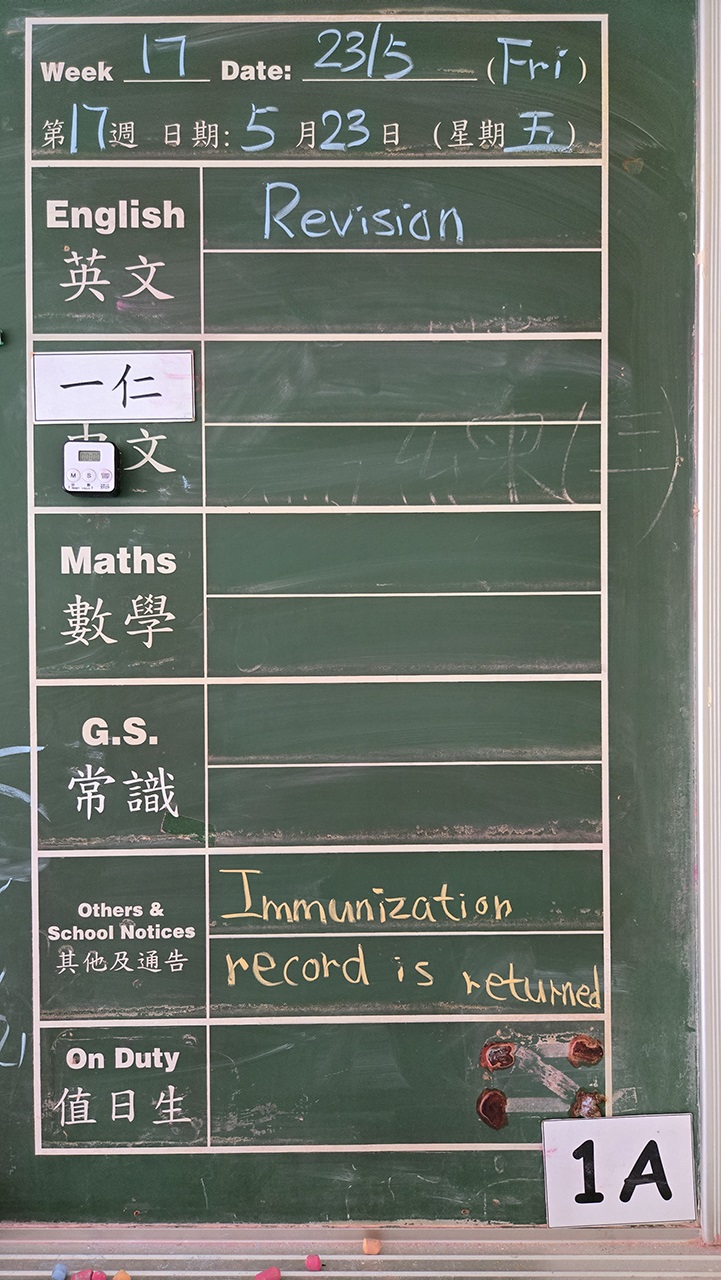 Week 17 Date: 23/5 (Fri)
第17週 日期: 5月23日 (星期五)
English
英文
Revision
一仁
文
Maths
數學
G.S.
常識
Others &
School Notices
其他及通告
Immunization
record is returned
On Duty
值日生
1A